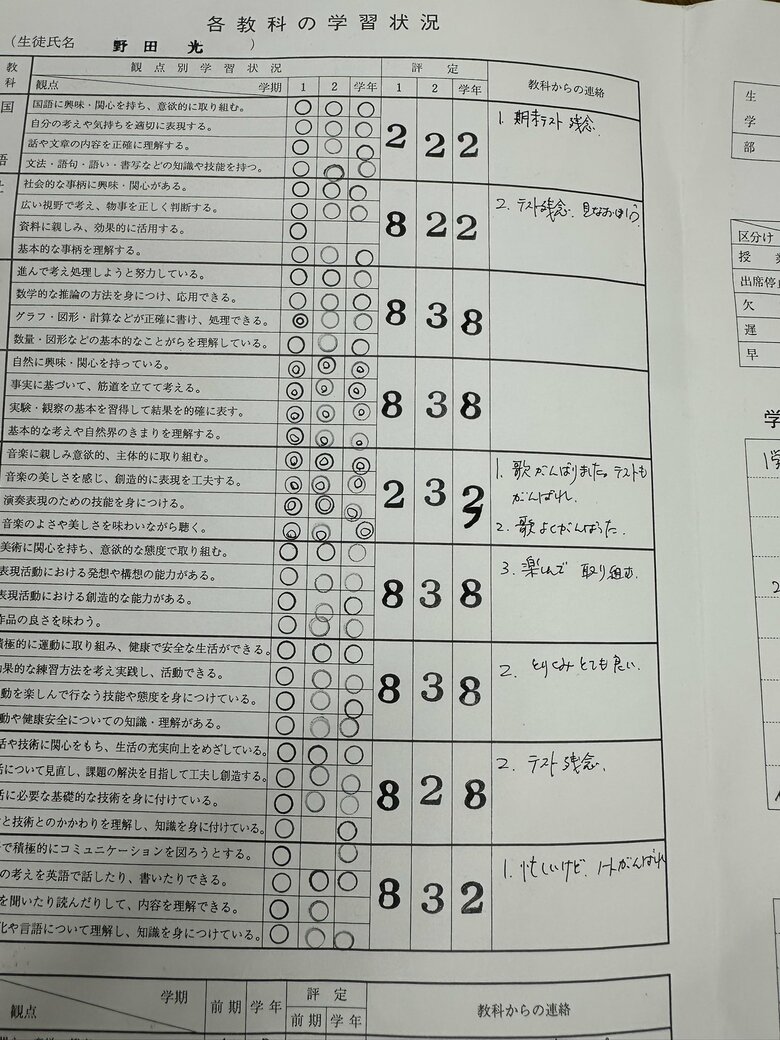 各教科の学習状況
(生徒氏名 野田 光 )
教科 観点別学習状況 評定 教科からの連絡
観点 学期 1 2 学年 1 2 学年
国語
国語に興味・関心を持ち、意欲的に取り組む。 ○ ○ ○
自分の考えや気持ちを適切に表現する。 ○ ○ ○
話や文章の内容を正確に理解する。 ○ ○ ○
文法・語句・語い・書写などの知識や技能を持つ。 ○ ○ ○
2 2 2
1. 期末テスト 残念.
社会的な事柄に興味・関心がある。 ○ ○ ○
広い視野で考え、物事を正しく判断する。 ○ ○ ○
資料に親しみ、効果的に活用する。 ○
基本的な事柄を理解する。 ○ ○ ○
8 2 2
2. テスト残念.
進んで考え処理しようと努力している。 ○ ○ ○
数学的な推論の方法を身につけ、応用できる。 ○ ○ ○
グラフ・図形・計算などが正確に書け、処理できる。 ◎ ○ ○
数量・図形などの基本的なことがらを理解している。 ○ ○ ○
8 3 8
自然に興味・関心を持っている。 ◎ ◎ ◎
事実に基づいて、筋道を立てて考える。 ◎ ◎ ◎
実験・観察の基本を習得して結果を的確に表す。 ◎ ◎ ◎
基本的な考えや自然界のきまりを理解する。 ◎ ◎ ◎
8 3 8
音楽に親しみ意欲的、主体的に取り組む。 ◎ ◎ ◎
音楽の美しさを感じ、創造的に表現を工夫する。 ◎ ◎ ◎
演奏表現のための技能を身につける。 ◎ ◎ ◎
音楽のよさや美しさを味わいながら聴く。 ◎ ◎ ◎
2 3 2
1. 歌がんばりました。テストも
がんばれ.
2. 歌よくがんばった.
美術に関心を持ち、意欲的な態度で取り組む。 ○ ○ ○
表現活動における発想や構想の能力がある。 ○ ○ ○
表現活動における創造的な能力がある。 ○ ○ ○
作品の良さを味わう。 ○ ○ ○
8 3 8
3. 楽しんで 取り組む.
積極的に運動に取り組み、健康で安全な生活ができる。 ○ ○ ○
効果的な練習方法を考え実践し、活動できる。 ○ ○ ○
動を楽しんで行なう技能や態度を身につけている。 ○ ○ ○
動や健康安全についての知識・理解がある。 ○ ○ ○
8 3 8
2. とりくみ とても良い.
活や技術に関心をもち、生活の充実向上をめざしている。 ○ ○ ○
活について見直し、課題の解決を目指して工夫し創造する。 ○ ○ ○
活に必要な基礎的な技術を身に付けている。 ○ ○ ○
と技術とのかかわりを理解し、知識を身に付けている。 ○ ○
8 2 8
2. テスト 残念.
で積極的にコミュニケーションを図ろうとする。 ○ ○
の考えを英語で話したり、書いたりできる。 ○ ○ ○
を聞いたり読んだりして、内容を理解できる。 ○ ○
化や言語について理解し、知識を身につけている。 ○ ○ ○
8 3 2
1. 忙しいけど、ノートがんばれ
学期 前期 学年 評定 教科からの連絡
観点 前期 学年
生
学
部
区分け
授業
出席停止
欠
遅
早
学
1学
2